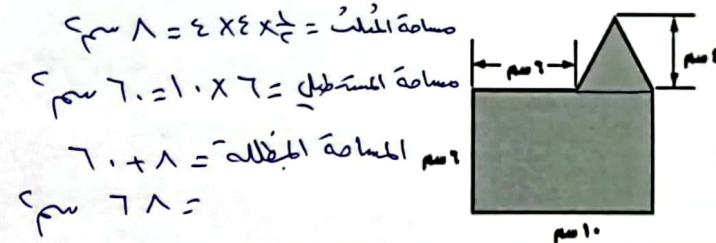 مساحة المثلث = ١/٢ × ٤ × ٤ = ٨ سم٢
مساحة المستطيل = ٦ × ١٠ = ٦٠ سم٢
المساحة المظللة = ٨ + ٦٠
= ٦٨ سم٢
٤ سم
٦ سم
٦ سم
١٠ سم